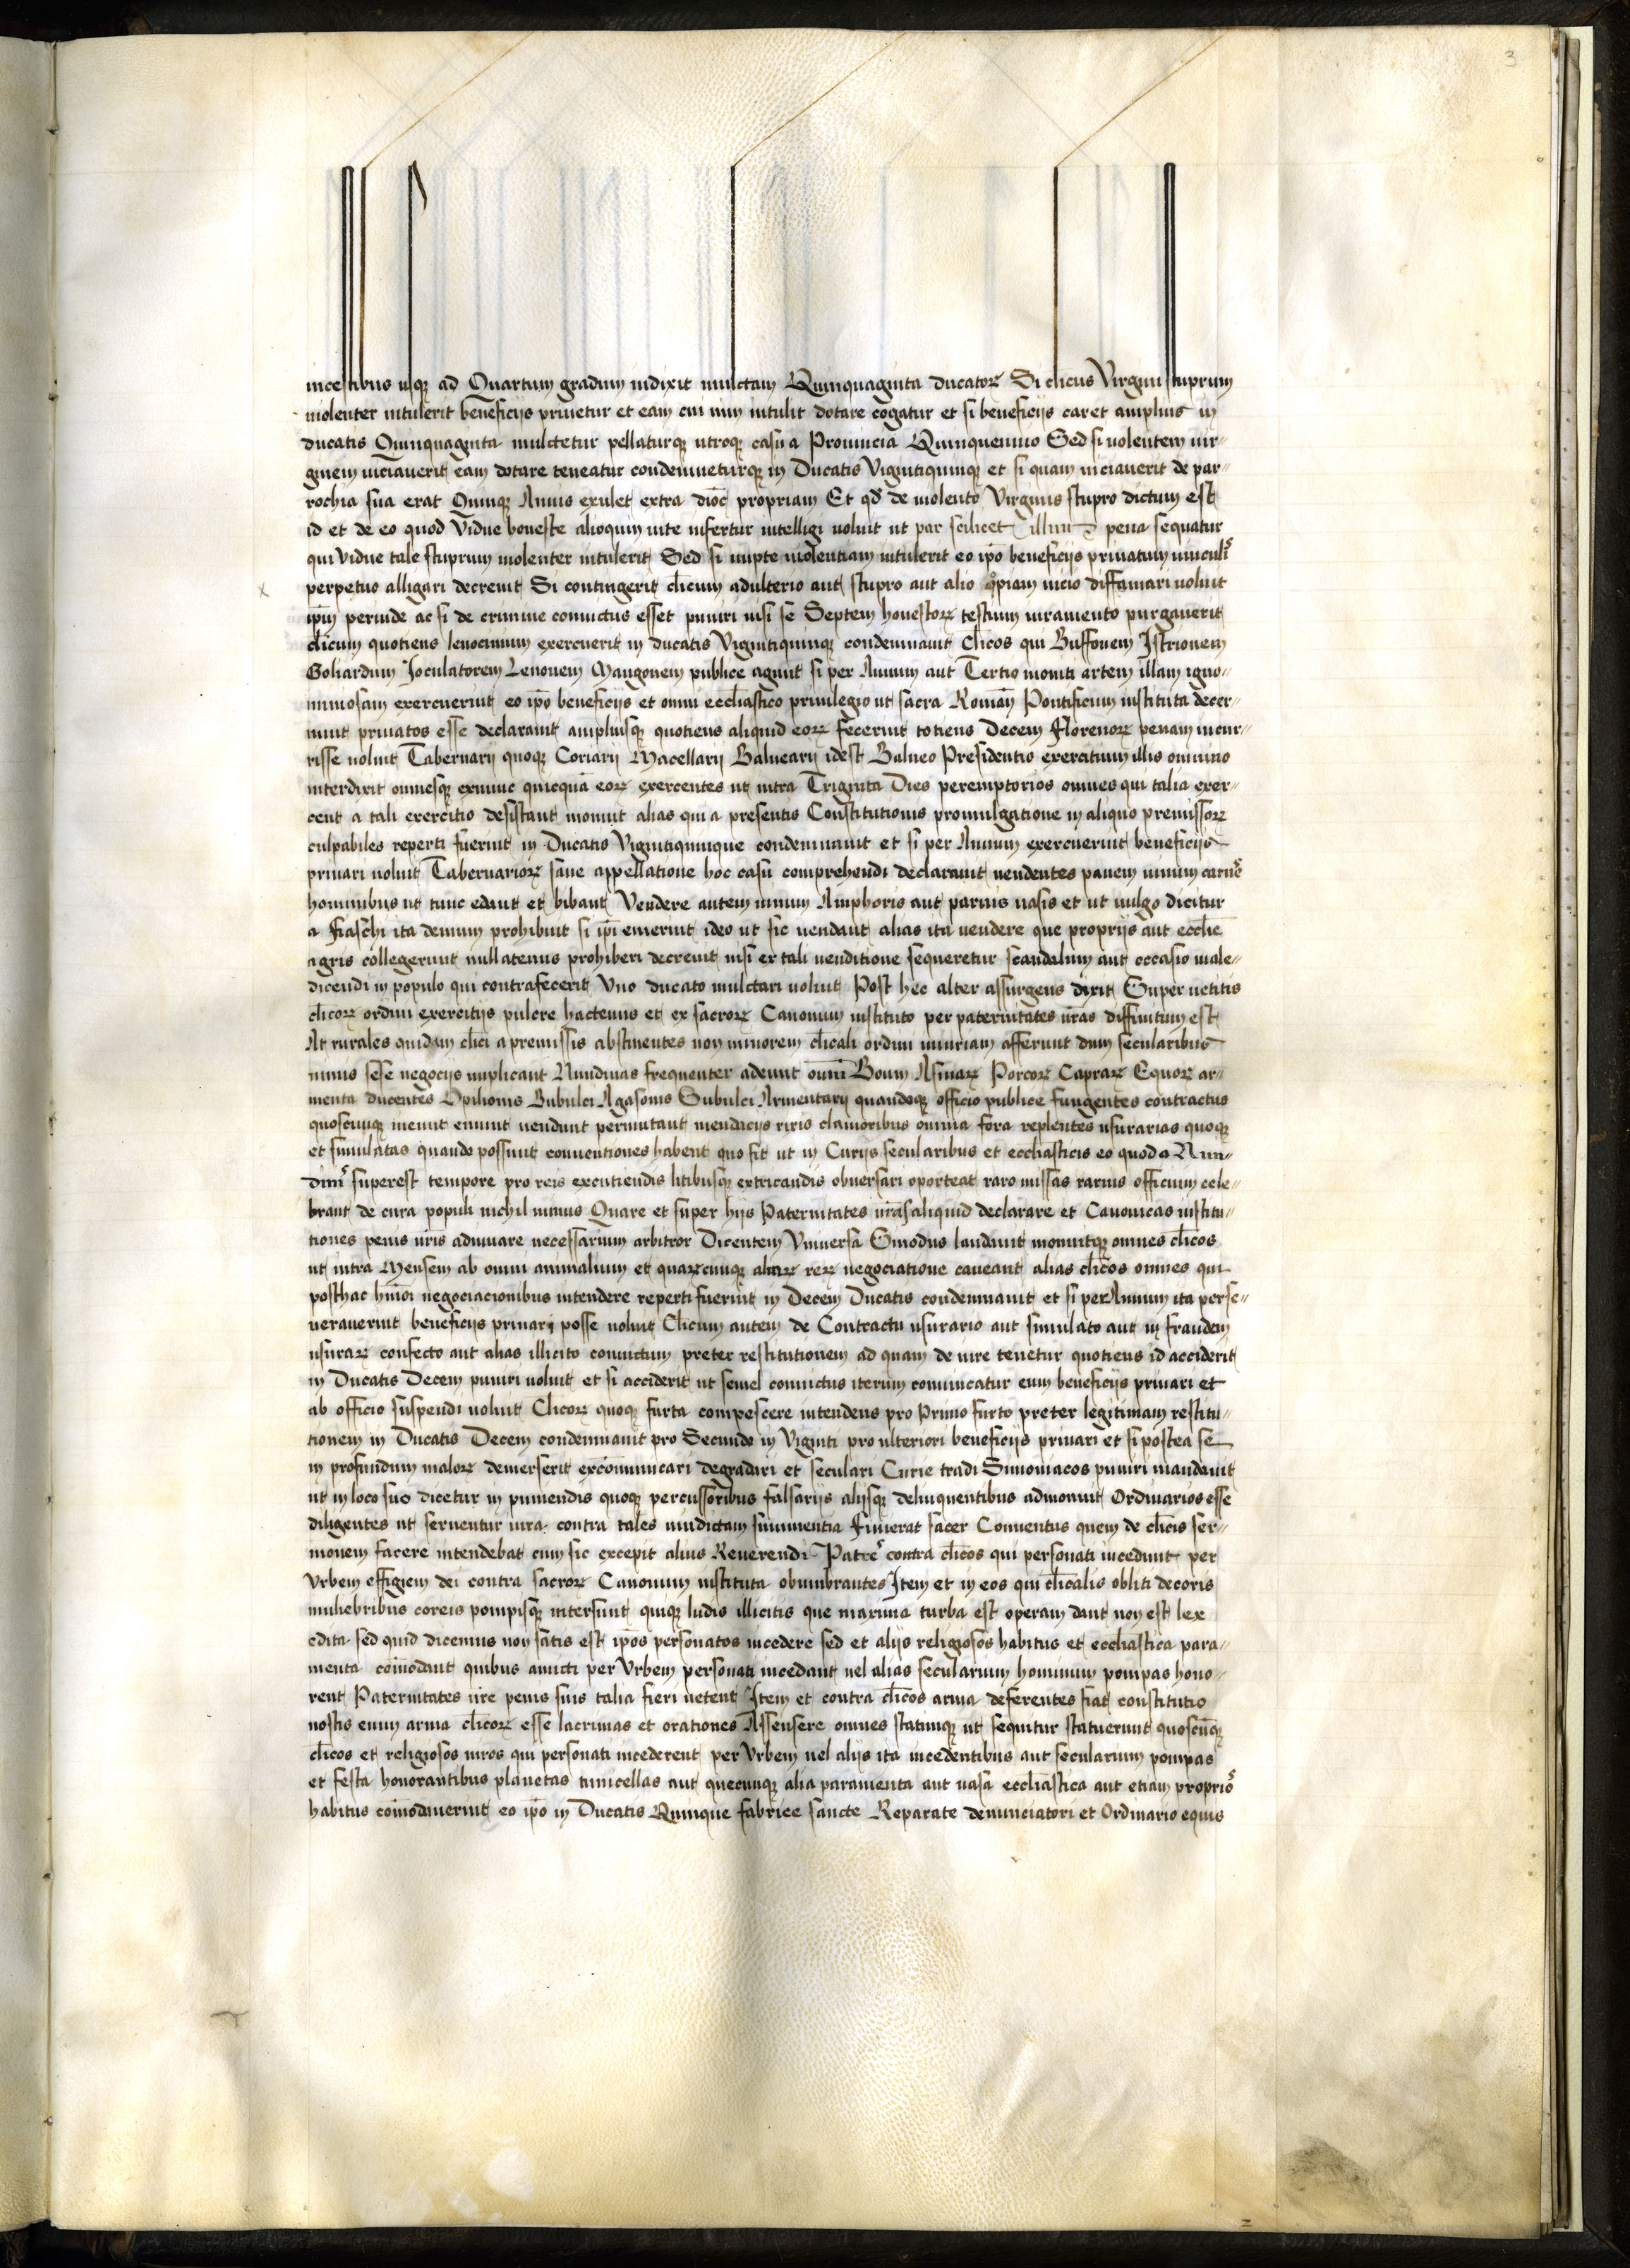 3
incestibus usq̃ ad Quartum gradum indixit mulctam Quinquaginta ducatoꝝ Si cl̃icus Virgini stuprum
uiolenter intulerit beneficijs priuetur et eam cui uim intulit dotare cogatur et si beneficijs caret amplius in
ducatis Quinquaginta mulctetur pellaturq̃ utroq̃ casu a Prouincia Quinquennio Sed si uolentem uir-
ginem uiciauerit eam dotare teneatur condemneturq̃ in Ducatis Vigintiquinq̃ et si quam uiciauerit de par-
rochia sua erat Quinq̃ Annis exulet extra dioc̃ propriam Et qd̃ de uiolento Virginis stupro dictum est
id et de eo quod Vidue honeste alioquin uite infertur intelligi uoluit ut par scilicet illum pena sequatur
qui Vidue tale stuprum uiolenter intulerit Sed si nupte uiolentiam intulerit eo ip̃o beneficijs priuatum uinculis
perpetuo alligari decreuit Si contingerit cl̃icum adulterio aut stupro aut alio q̃piam uicio diffamari uoluit
ip̃m perinde ac si de crimine conuictus esset puniri nisi se Septem honestoꝝ testium iuramento purgauerit
cl̃icum quotiens lenocinium exercuerit in ducatis Vigintiquinq̃ condemnauit Cl̃icos qui Buffonem Istrionem
Goliardum Joculatorem Lenonem Mangonem publice agunt si per Annum aut Tertio moniti artem illam igno-
miniosam exercuerint eo ip̃o beneficijs et omni eccl̃iastico priuilegio ut sacra Romañ Pontificum instituta decer-
nunt priuatos esse declarauit ampliusq̃ quotiens aliquid eoꝝ fecerint totiens Decem Florenoꝝ penam incur-
risse uoluit Tabernarij quoq̃ Coriarij Macellarij Balnearij idest Balneo Presidentio exercitium illis omnino
interdixit omnesq̃ exnunc quicquã eoꝝ exercentes ut intra Triginta Dies peremptorios omnes qui talia exer-
cent a tali exercitio desistant monuit alias qui a presentis Constitutionis promulgatione in aliquo premissoꝝ
culpabiles reperti fuerint in Ducatis Vigintiquinque condemnauit et si per Annum exercuerint beneficijs
priuari uoluit Tabernarioꝝ sane appellatione hoc casu comprehendi declarauit uendentes panem uinum carnes
hominibus ut tunc edant et bibant Vendere autem uinum Amphoris aut paruis uasis et ut uulgo dicitur
a fiaschi ita demum prohibuit si ip̃i emerint ideo ut sic uendant alias ita uendere que proprijs aut eccl̃ie
agris collegerunt nullatenus prohiberi decreuit nisi ex tali uenditione sequeretur scandalum aut occasio male-
dicendi in populo qui contrafecerit Vno ducato mulctari uoluit Post hec alter assurgens dixit Super uetitis
cl̃icoꝝ ordini exercitijs pulcre hactenus et ex sacroꝝ Canonum instituto per paternitates ur̃as diffinitum est
At rurales quidam cl̃ici a premissis abstinentes non minorem cl̃icali ordini iniuriam afferunt dum secularibus
nimis sese negocijs implicant Nundinas frequenter adeunt ouiũ Boum Asinaꝝ Porcoꝝ Capraꝝ Equoꝝ ar-
menta ducentes Opilionis Bubulci Agasonis Subulci Armentarij quandoq̃ officio publice fungentes contractus
quoscunq̃ ineunt emunt uendunt permutant mendacijs rixis clamoribus omnia fora replentes usurarias quoq̃
et simulatas quando possunt conuentiones habent quo fit ut in Curijs secularibus et eccl̃iasticis eo quod a Nun-
dinis superest tempore pro reis excutiendis litibusq̃ extricandis obuersari oporteat raro missas rarius officium cele-
brant de cura populi nichil minus Quare et super hijs Paternitates ur̃as aliquid declarare et Canonicas institu-
tiones penis ur̃is adiuuare necessarium arbitror Dicentem Vniuersa Sinodus laudauit monuitq̃ omnes cl̃icos
ut intra Mensem ab omni animalium et quarꝝcunq̃ aliarꝝ rerꝝ negociatione caueant alias cl̃icos omnes qui
posthac hmõi negociacionibus intendere reperti fuerint in Decem Ducatis condemnauit et si per Annum ita perse-
uerauerint beneficijs priuari posse uoluit Cl̃icum autem de Contractu usurario aut simulato aut in fraudem
usuraꝝ confecto aut alias illicito conuictum preter restitutionem ad quam de iure tenetur quotiens id acciderit
in Ducatis Decem puniri uoluit et si acciderit ut semel conuictus iterum conuincatur eum beneficijs priuari et
ab officio suspendi uoluit Cl̃icoꝝ quoq̃ furta compescere intendens pro Primo furto preter legitimam restitu-
tionem in Ducatis Decem condemnauit pro Secundo in Viginti pro ulteriori beneficijs priuari et si postea se
in profundum maloꝝ demerserit excõmunicari degradari et seculari Curie tradi Simoniacos puniri mandauit
ut in loco suo dicetur in puniendis quoq̃ percussoribus falsarijs alijsq̃ delinquentibus admonuit Ordinarios esse
diligentes ut seruentur iura contra tales uindictam summentia Finierat sacer Conuentus quem de cl̃icis ser-
monem facere intendebat cum sic excepit alius Reuerendi Patres contra cl̃icos qui personati incedunt per
Vrbem effigiem dei contra sacroꝝ Canonum instituta obumbrantes Item et in eos qui cl̃icalis obliti decoris
muliebribus coreis pompisq̃ intersunt quiq̃ ludis illicitis que maxima turba est operam dant non est lex
edita sed quid dicemus non satis est ip̃os personatos incedere sed et alijs religiosos habitus et eccl̃iastica para-
menta cõmodant quibus amicti per Vrbem personati incedant uel alias secularium hominum pompas hono-
rent Paternitates ur̃e penis suis talia fieri uetent Item et contra cl̃icos arma deferentes fiat constitutio
nostis enim arma cl̃icoꝝ esse lacrimas et orationes Assensere omnes statimq̃ ut sequitur statuerunt quoscũq̃
cl̃icos et religiosos uiros qui personati incederent per Vrbem uel alijs ita incedentibus aut secularium pompas
et festa honorantibus planetas tunicellas aut quecunq̃ alia paramenta aut uasa eccl̃iastica aut etiam proprios
habitus cõmodauerint eo ip̃o in Ducatis Quinque fabrice sancte Reparate denunciatori et Ordinario equis